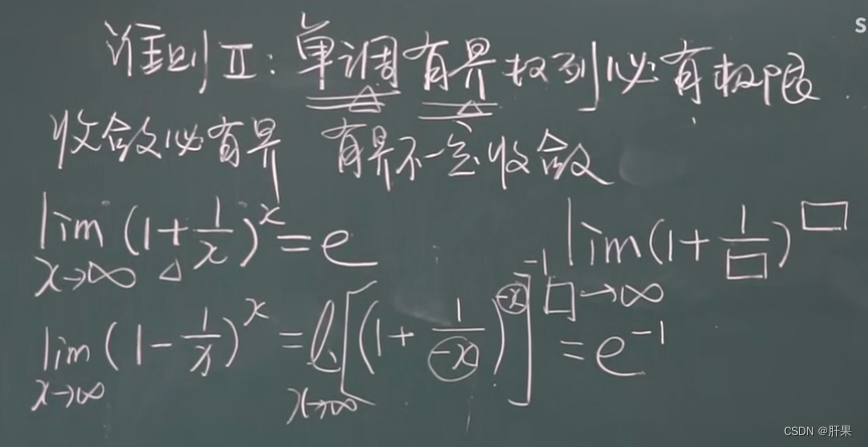 准则Ⅱ：单调有界数列必有极限
收敛必有界 有界不一定收敛
lim x→∞ (1+1/x)^x = e
lim □→∞ (1+1/□)^□
lim x→∞ (1-1/x)^x = l. x→∞ [(1+1/(-x))^(-x)]^-1 = e^-1
S
CSDN @肝果